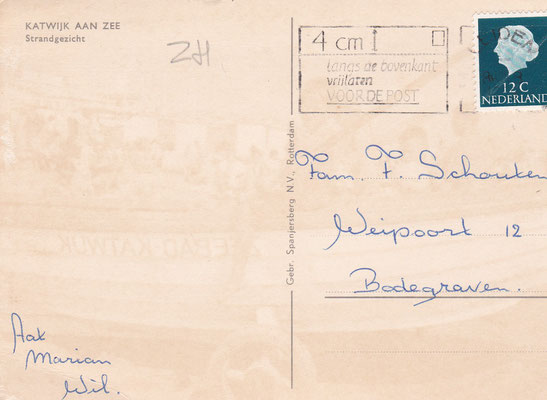 KATWIJK AAN ZEE
Strandgezicht
ZH
4 cm
langs de bovenkant
vrijlaten
VOOR DE POST
LEIDEN
12 C
NEDERLAND
Gebr. Spanjersberg N.V., Rotterdam
Fam. F. Schouten
Weipoort 12
Bodegraven.
Aat
Marian
Wil.